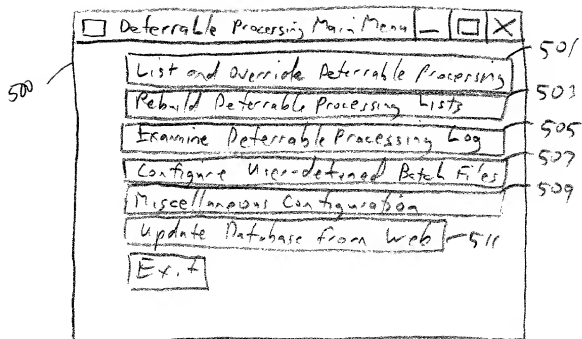 Deferrable Processing Main Menu
501
500
List and Override Deferrable Processing
503
Rebuild Deferrable Processing Lists
505
Examine Deferrable Processing Log
507
Configure User-defined Batch Files
509
Miscellaneous Configuration
Update Database from Web
511
Exit